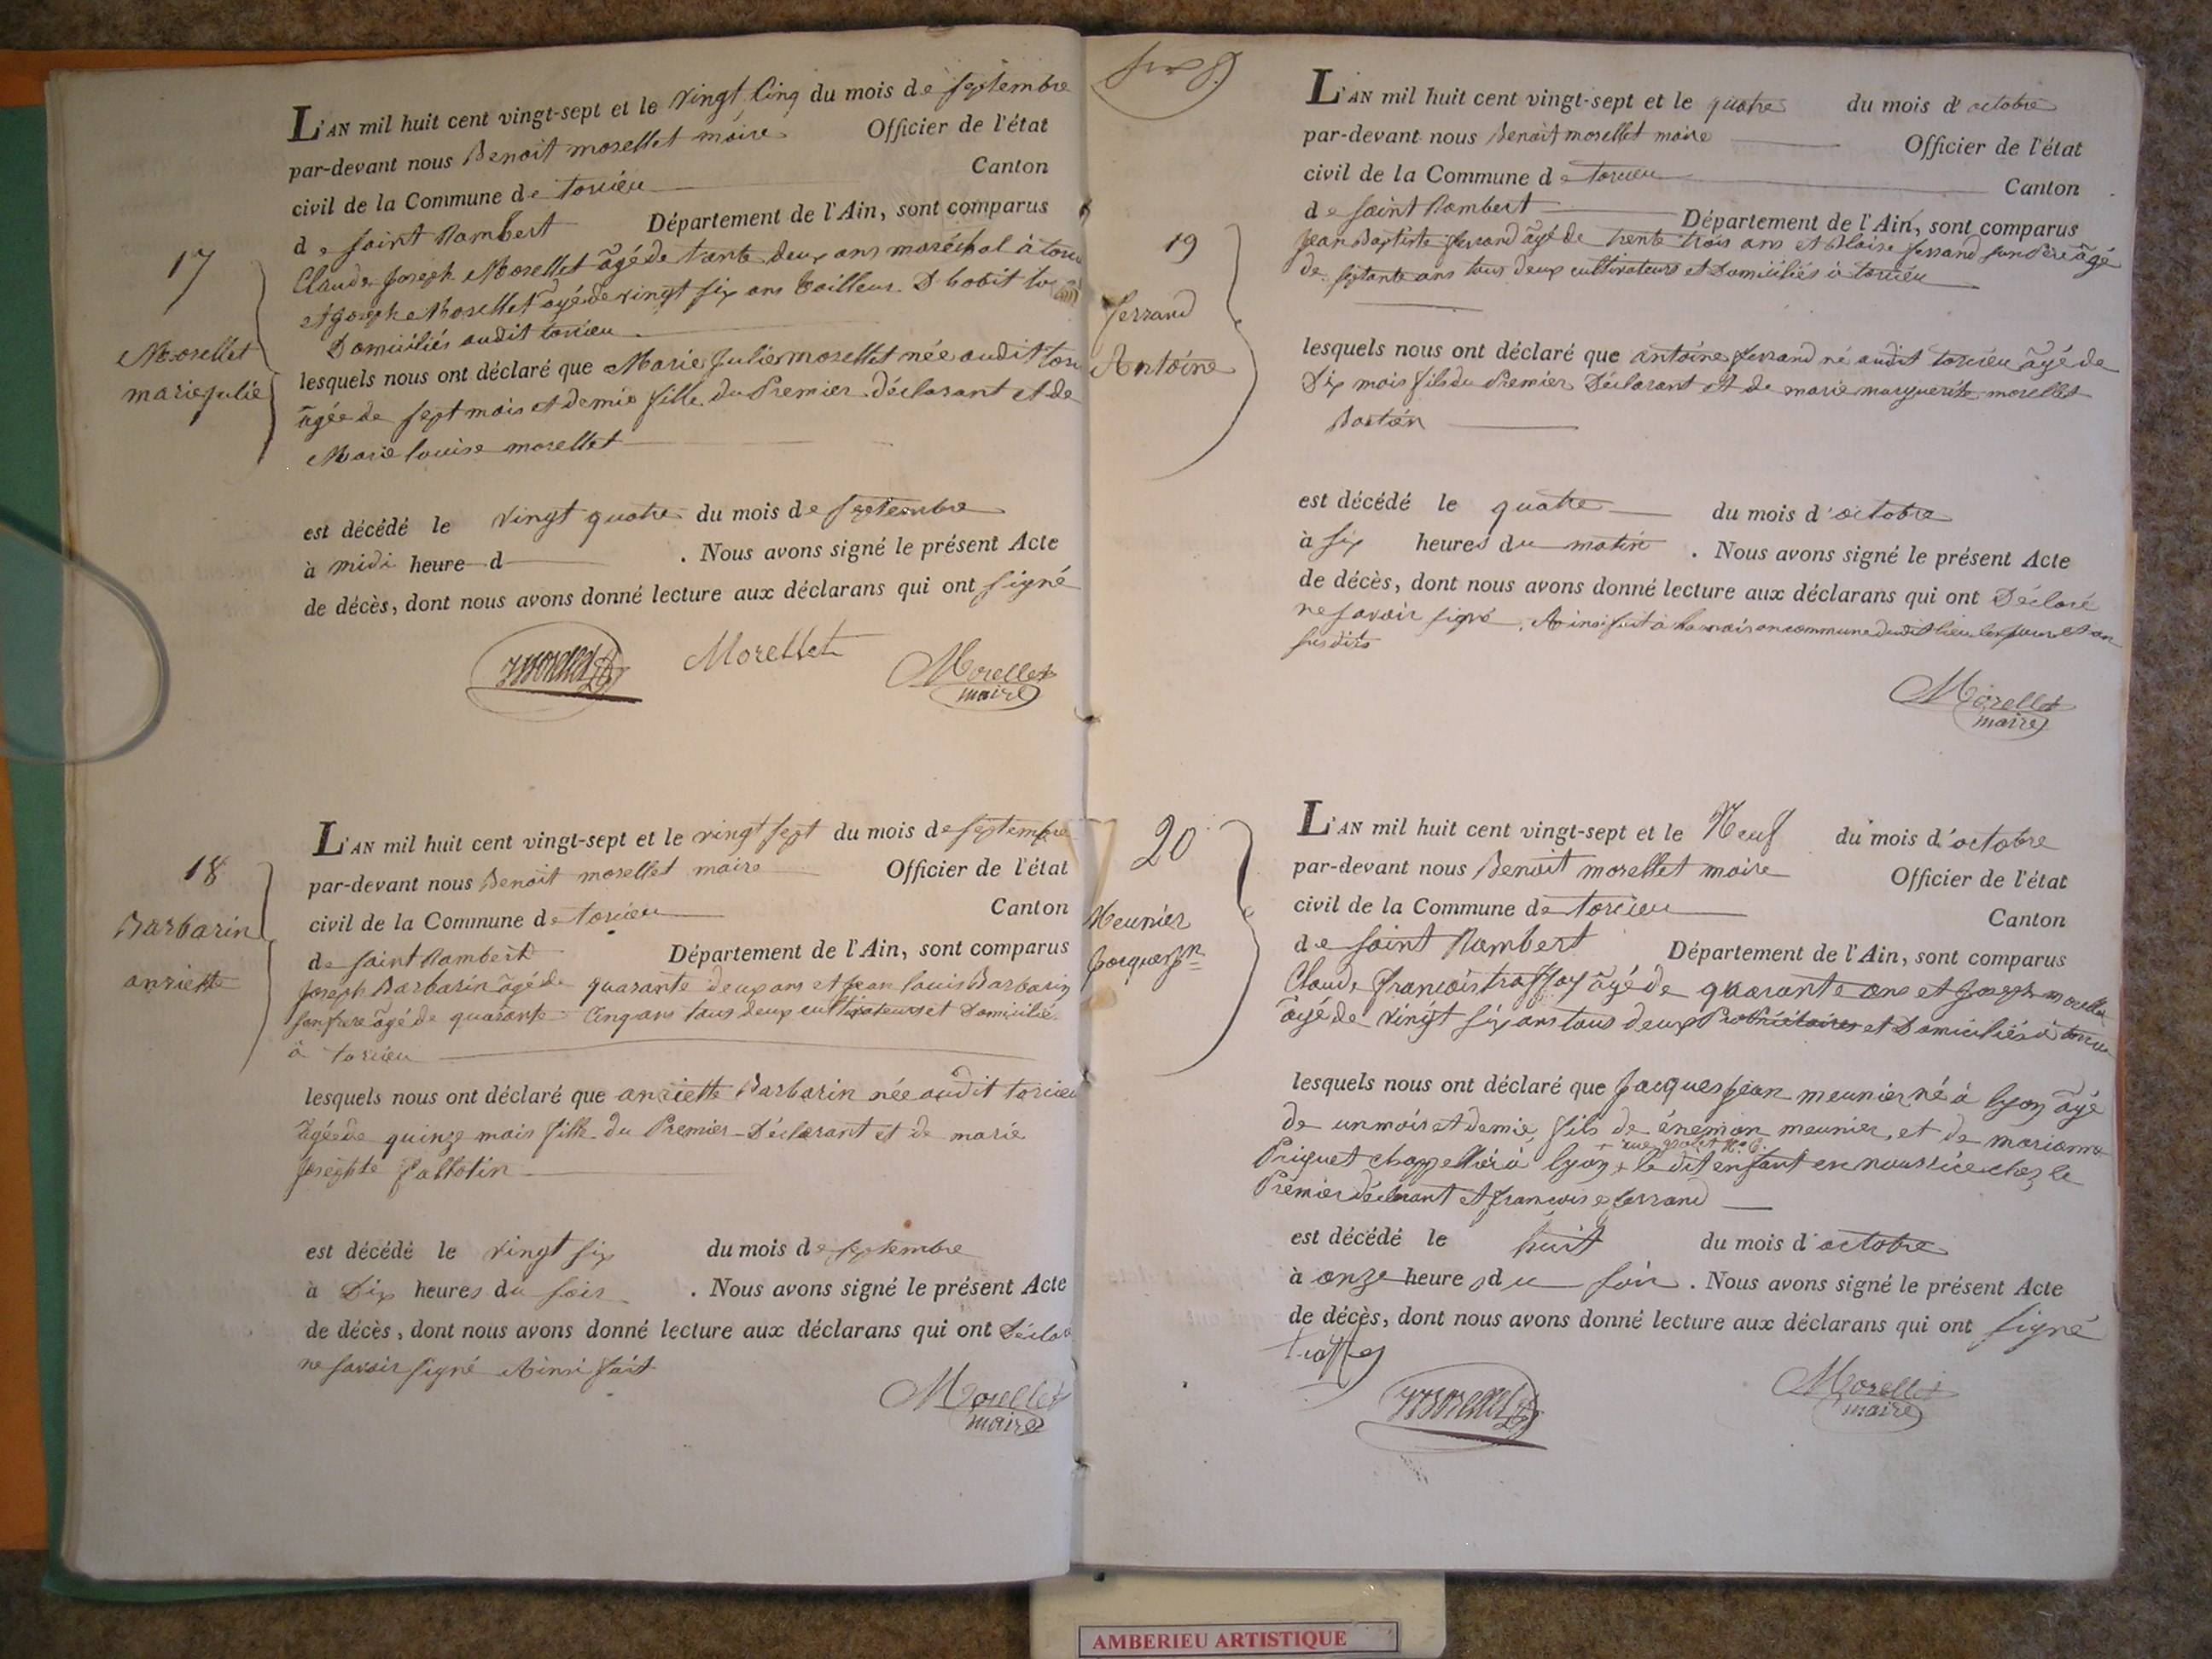 L'AN mil huit cent vingt-sept et le vingt Cinq du mois de septembre
par-devant nous Benoit morellet maire Officier de l'état
civil de la Commune de torcieu Canton
de saint Rambert Département de l'Ain, sont comparus
17
Claude Joseph Morellet âgé de trente deux ans maréchal à
et Joseph Morellet âgé de vingt six ans tailleur D'habit
Domiciliés audit torcieu
Morellet
marie julie
lesquels nous ont déclaré que Marie Julie morellet née audit
âgée de sept mois et demie fille du Premier déclarant et de
Marie louise morellet
est décédé le vingt quatre du mois de septembre
à midi heure d . Nous avons signé le présent Acte
de décès, dont nous avons donné lecture aux déclarans qui ont signé
Morellet Morellet
maire
L'AN mil huit cent vingt-sept et le vingt sept du mois de septembre
18
par-devant nous Benoit morellet maire Officier de l'état
civil de la Commune de torcieu Canton
Barbarin
anriette
de saint Rambert Département de l'Ain, sont comparus
Joseph Barbarin âgé de quarante deux ans et jean louis Barbarin
son frere âgé de quarante Cinq ans tous deux cultivateurs et Domicilié
à torcieu
lesquels nous ont déclaré que anriette Barbarin née audit torcieu
âgée de quinze mois fille du Premier Déclarant et de marie
josephte
est décédé le vingt six du mois de septembre
à Dix heures du soir . Nous avons signé le présent Acte
de décès, dont nous avons donné lecture aux déclarans qui ont
ne savoir signé Ainsi fait
Morellet
maire
L'AN mil huit cent vingt-sept et le quatre du mois d'octobre
par-devant nous Benoit morellet maire Officier de l'état
civil de la Commune de torcieu Canton
de saint Rambert Département de l'Ain, sont comparus
19
ferrand
Antoine
Jean Baptiste ferrand âgé de trente trois ans et Blaise ferrand son Père âgé
de septante ans tous deux cultivateurs et Domiciliés à torcieu
lesquels nous ont déclaré que antoine ferrand né audit torcieu âgé de
Dix mois fils du Premier Déclarant et de marie marguerite morellet
est décédé le quatre du mois d'octobre
à six heures du matin . Nous avons signé le présent Acte
de décès, dont nous avons donné lecture aux déclarans qui ont Déclaré
ne savoir signé. Ainsi fait à la maison commune dudit lieu les jour et an
susdits
Morellet
maire
L'AN mil huit cent vingt-sept et le Neuf du mois d'octobre
20
par-devant nous Benoit morellet maire Officier de l'état
civil de la Commune de torcieu Canton
Meunier
Jacques jn
de saint Rambert Département de l'Ain, sont comparus
Claude françois âgé de quarante ans et Joseph morellet
âgé de vingt six ans tous deux Propriétaires et Domiciliés à
lesquels nous ont déclaré que Jacques jean meunier né à lyon âgé
de un mois et demie, fils de énemon meunier, et de marianne
Priquet à lyon + le dit enfant en nourrice chez le
Premier déclarant et françoise ferrand
est décédé le huit du mois d'octobre
à onze heures du soir . Nous avons signé le présent Acte
de décès, dont nous avons donné lecture aux déclarans qui ont signé
Morellet
maire
AMBERIEU ARTISTIQUE